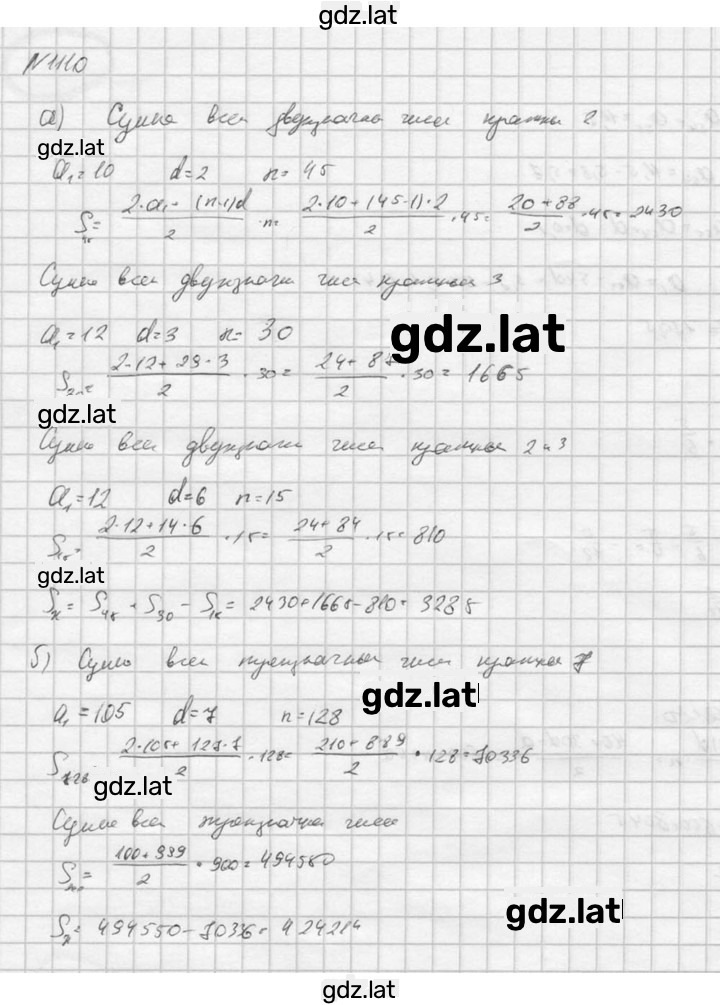 gdz.lat
N 1110
а) Сумма всех двузначных чисел кратных 2
gdz.lat
a₁=10 d=2 n=45
S₄₅= (2·a₁+(n-1)d)/2 ·n= (2·10+(45-1)·2)/2 ·45= (20+88)/2 ·45=2430
Сумма всех двузначн чисел кратных 3
a₁=12 d=3 n=30
gdz.lat
S₃₀= (2·12+29·3)/2 ·30= (24+87)/2 ·30=1665
gdz.lat
Сумма всех двузначн чисел кратных 2 и 3
a₁=12 d=6 n=15
S₁₅= (2·12+14·6)/2 ·15= (24+84)/2 ·15=810
gdz.lat
Sₓ= S₄₅+S₃₀-S₁₅= 2430+1665-810=3285
б) Сумма всех трехзначных чисел кратных 7
gdz.lat
a₁=105 d=7 n=128
S₁₂₈ (2·105+127·7)/2 ·128= (210+889)/2 ·128=70336
gdz.lat
Сумма всех трехзначных чисел
(100+999)/2 ·900=494550
gdz.lat
Sₓ= 494550-70336=424214
gdz.lat